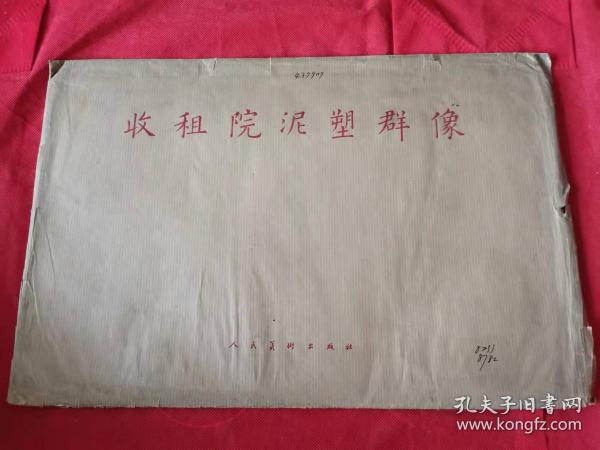 437909
收租院泥塑群像
人民美術出版社
8253
8782
孔夫子旧书网
www.kongfz.com